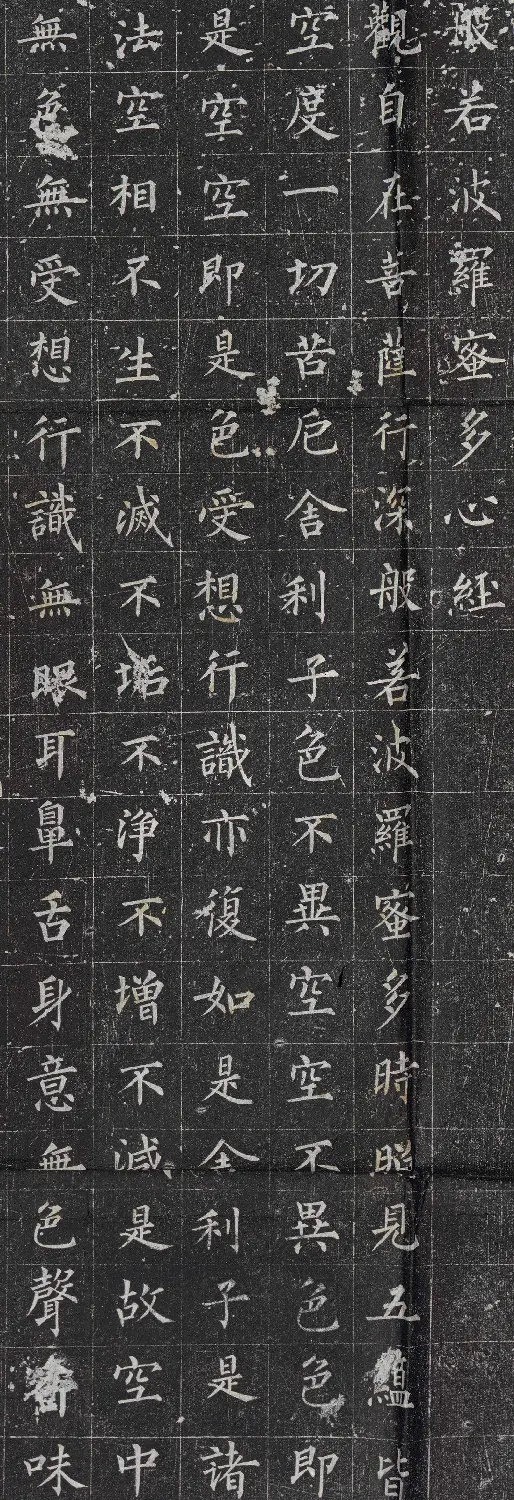 般若波羅蜜多心経
觀自在菩薩行深般若波羅蜜多時照見五蘊皆
空度一切苦厄舍利子色不異空空不異色色即
是空空即是色受想行識亦復如是舍利子是諸
法空相不生不滅不垢不淨不增不減是故空中
無色無受想行識無眼耳鼻舌身意無色聲香味